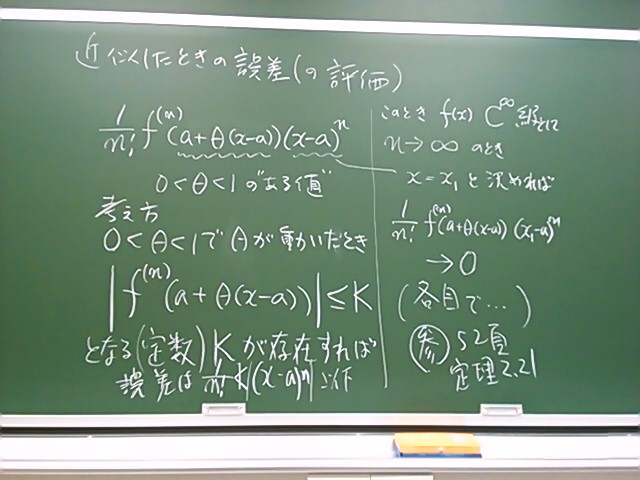 近似したときの誤差(の評価)
1/n! f^(n)(a+θ(x-a))(x-a)^n
0<θ<1の"ある値"
考え方
0<θ<1でθが動いたとき
|f^(n)(a+θ(x-a))|≤K
となる(定数)Kが存在すれば
誤差は 1/n! K|(x-a)^n| 以下
このとき f(x) C^∞級として
n→∞ のとき
x=x₁と決めれば
1/n! f^(n)(a+θ(x-a))(x₁-a)^n
→0
(各自で...)
参 52頁
定理2.21